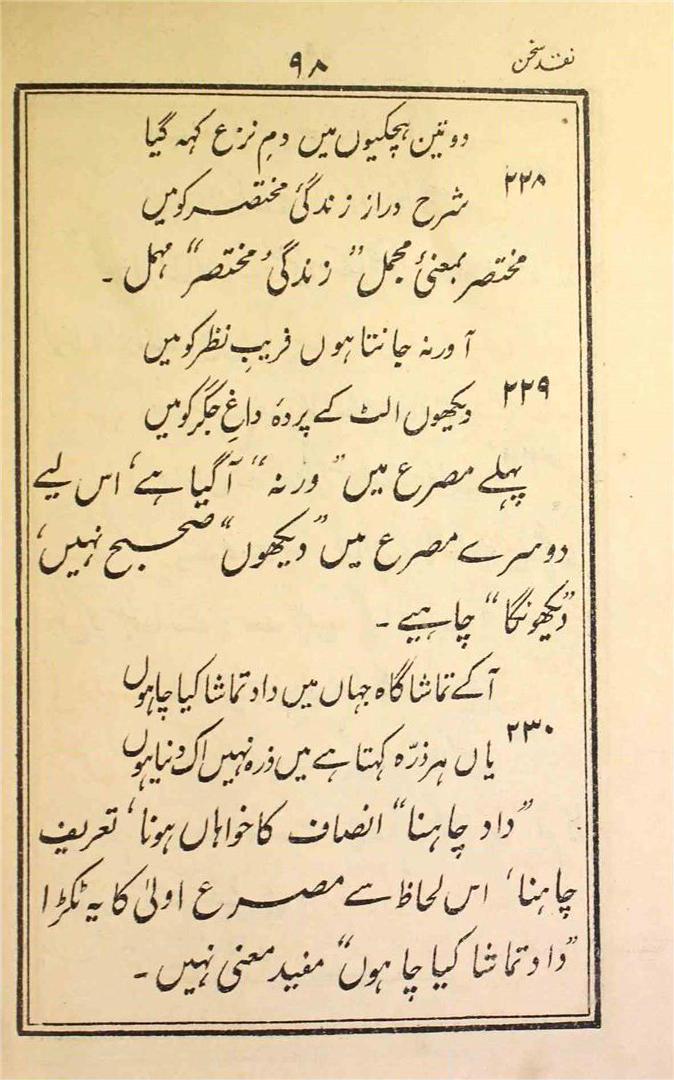 نقد سخن
۹۸
دو تین ہچکیوں میں دمِ نزع کہہ گیا
۲۲۸
شرح دراز زندگیٔ مختصر کو میں
مختصر بمعنیٔ مجمل ”زندگیٔ مختصر“ مہمل ۔
آ ورنہ جانتا ہوں فریبِ نظر کو میں
۲۲۹
دیکھوں الٹ کے پردۂ داغِ جگر کو میں
پہلے مصرع میں ”ورنہ“ آگیا ہے‘ اس لیے
دوسرے مصرع میں ”دیکھوں“ صحیح نہیں‘
”دیکھونگا“ چاہیے ۔
آکے تماشاگاہ جہاں میں داد تماشا کیا چاہوں
۲۳۰
یاں ہر ذرّہ کہتا ہے میں ذرہ نہیں اک دنیا ہوں
”داد چاہنا“ انصاف کا خواہاں ہونا‘ تعریف
چاہنا‘ اس لحاظ سے مصرع اولیٰ کا یہ ٹکڑا
”داد تماشا کیا چاہوں“ مفید معنی نہیں ۔